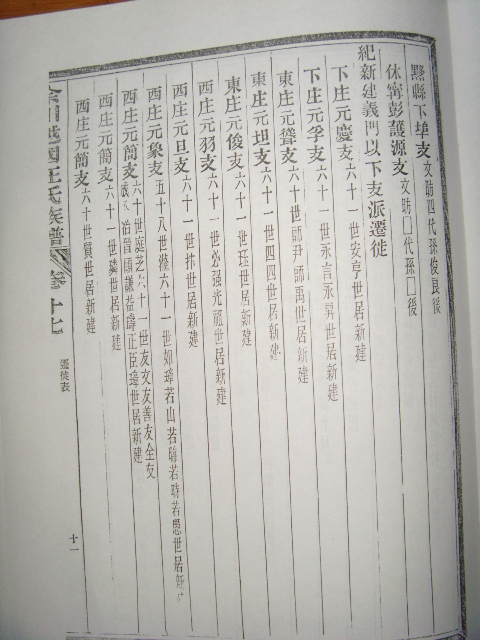 黟縣下垏支文助四代孫俊良後
休寧彭護源支文助□代孫□後
紀新建義門以下支派遷徙
下庄元慶支六十一世安亨世居新建
下庄元孚支六十一世永言永昇世居新建
東庄元聳支六十世師尹師禹世居新建
東庄元坦支六十一世四四世居新建
東庄元俊支六十一世珏世居新建
西庄元羽支六十一世必强光冠世居新建
西庄元旦支六十一世祚世居新建
西庄元象支五十八世 六十一世如璋若山若 若 若愚世居新
西庄元簡支六十世庭芝六十一世友文友善友全友 治晉碩謙益璹正臣瑋世居新建
西庄元簡支六十一世 世居新建
西庄元簡支六十世質世居新建
越國汪氏族譜 卷十七
遷徙表
十一